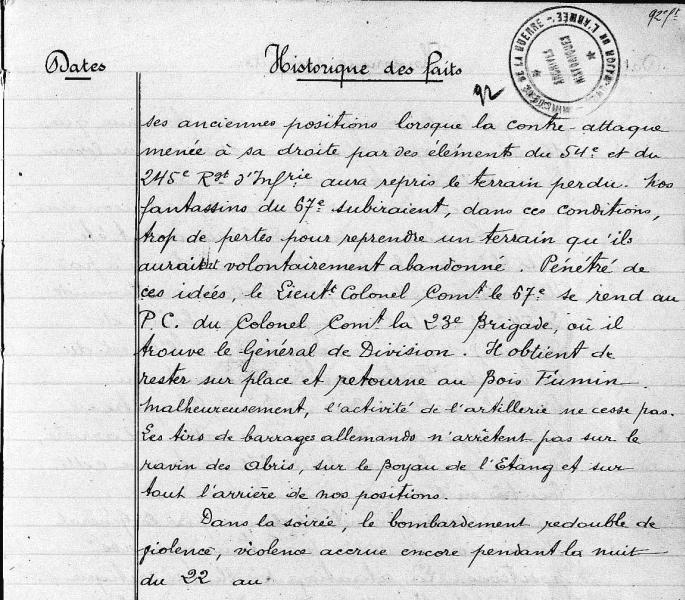 92e ft
Dates
Historique des faits
92
MINISTÈRE DE LA GUERRE - ÉTAT-MAJOR DE L'ARMÉE
ARCHIVES
HISTORIQUES
ses anciennes positions lorsque la contre-attaque
menée à sa droite par des éléments du 54e et du
245e Rgt d'Infrie aura repris le terrain perdu. Nos
fantassins du 67e subiraient, dans ces conditions,
trop de pertes pour reprendre un terrain qu'ils
auraient volontairement abandonné. Pénétré de
ces idées, le Lieutt Colonel Comt le 67e se rend au
P.C. du Colonel Comt la 23e Brigade, où il
trouve le Général de Division. Il obtient de
rester sur place et retourne au Bois Fumin.
Malheureusement, l'activité de l'artillerie ne cesse pas.
Les tirs de barrages allemands n'arrêtent pas sur le
ravin des Abris, sur le Boyau de l'Etang et sur
tout l'arrière de nos positions.
Dans la soirée, le bombardement redouble de
violence, violence accrue encore pendant la nuit
du 22 au